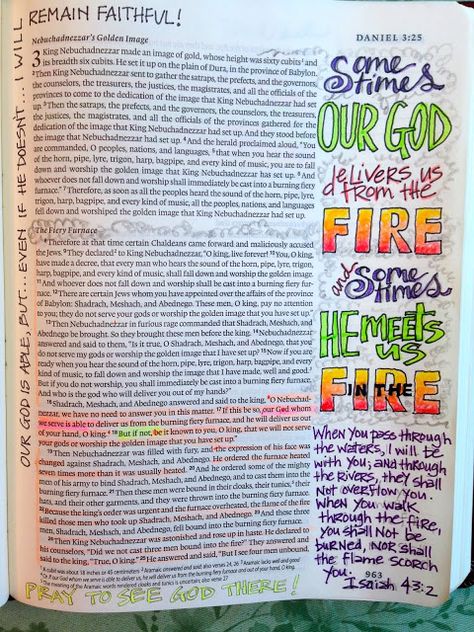 OUR GOD IS ABLE, BUT...EVEN IF HE DOESN'T... I WILL REMAIN FAITHFUL!
Nebuchadnezzar's Golden Image
DANIEL 3:25
3 King Nebuchadnezzar made an image of gold, whose height was sixty cubits¹ and
its breadth six cubits. He set it up on the plain of Dura, in the province of Babylon.
² Then King Nebuchadnezzar sent to gather the satraps, the prefects, and the governors,
the counselors, the treasurers, the justices, the magistrates, and all the officials of the
provinces to come to the dedication of the image that King Nebuchadnezzar had set
up. ³ Then the satraps, the prefects, and the governors, the counselors, the treasurers,
the justices, the magistrates, and all the officials of the provinces gathered for the
dedication of the image that King Nebuchadnezzar had set up. And they stood before
the image that Nebuchadnezzar had set up. ⁴ And the herald proclaimed aloud, "You
are commanded, O peoples, nations, and languages, ⁵ that when you hear the sound
of the horn, pipe, lyre, trigon, harp, bagpipe, and every kind of music, you are to fall
down and worship the golden image that King Nebuchadnezzar has set up. ⁶ And
whoever does not fall down and worship shall immediately be cast into a burning fiery
furnace." ⁷ Therefore, as soon as all the peoples heard the sound of the horn, pipe, lyre,
trigon, harp, bagpipe, and every kind of music, all the peoples, nations, and languages
fell down and worshiped the golden image that King Nebuchadnezzar had set up.
The Fiery Furnace
⁸ Therefore at that time certain Chaldeans came forward and maliciously accused
the Jews. ⁹ They declared² to King Nebuchadnezzar, "O king, live forever! ¹⁰ You, O king,
have made a decree, that every man who hears the sound of the horn, pipe, lyre, trigon,
harp, bagpipe, and every kind of music, shall fall down and worship the golden image.
¹¹ And whoever does not fall down and worship shall be cast into a burning fiery furnace.
¹² There are certain Jews whom you have appointed over the affairs of the province
of Babylon: Shadrach, Meshach, and Abednego. These men, O king, pay no attention
to you; they do not serve your gods or worship the golden image that you have set up."
¹³ Then Nebuchadnezzar in furious rage commanded that Shadrach, Meshach, and
Abednego be brought. So they brought these men before the king. ¹⁴ Nebuchadnezzar
answered and said to them, "Is it true, O Shadrach, Meshach, and Abednego, that you
do not serve my gods or worship the golden image that I have set up? ¹⁵ Now if you are
ready when you hear the sound of the horn, pipe, lyre, trigon, harp, bagpipe, and every
kind of music, to fall down and worship the image that I have made, well and good.³
But if you do not worship, you shall immediately be cast into a burning fiery furnace.
And who is the god who will deliver you out of my hands?"
¹⁶ Shadrach, Meshach, and Abednego answered and said to the king, "O Nebuchad-
nezzar, we have no need to answer you in this matter. ¹⁷ If this be so, our God whom
we serve is able to deliver us from the burning fiery furnace, and he will deliver us out
of your hand, O king.⁴ ¹⁸ But if not, be it known to you, O king, that we will not serve
your gods or worship the golden image that you have set up."
¹⁹ Then Nebuchadnezzar was filled with fury, and the expression of his face was
changed against Shadrach, Meshach, and Abednego. He ordered the furnace heated
seven times more than it was usually heated. ²⁰ And he ordered some of the mighty
men of his army to bind Shadrach, Meshach, and Abednego, and to cast them into the
burning fiery furnace. ²¹ Then these men were bound in their cloaks, their tunics,⁵ their
hats, and their other garments, and they were thrown into the burning fiery furnace.
²² Because the king's order was urgent and the furnace overheated, the flame of the fire
killed those men who took up Shadrach, Meshach, and Abednego. ²³ And these three
men, Shadrach, Meshach, and Abednego, fell bound into the burning fiery furnace.
²⁴ Then King Nebuchadnezzar was astonished and rose up in haste. He declared to
his counselors, "Did we not cast three men bound into the fire?" They answered and
said to the king, "True, O king." ²⁵ He answered and said, "But I see four men unbound,
PRAY TO SEE GOD THERE!
Some
times
OUR GOD
delivers us
from the
FIRE
and Some
times
HE meets
us
IN THE
FIRE
When you pass through
the waters, I will be
with you; and through
the rivers, they shall
not overflow you.
When you walk
through the fire,
you shall not be
burned, nor shall
the flame scorch
you.
963
Isaiah 43:2